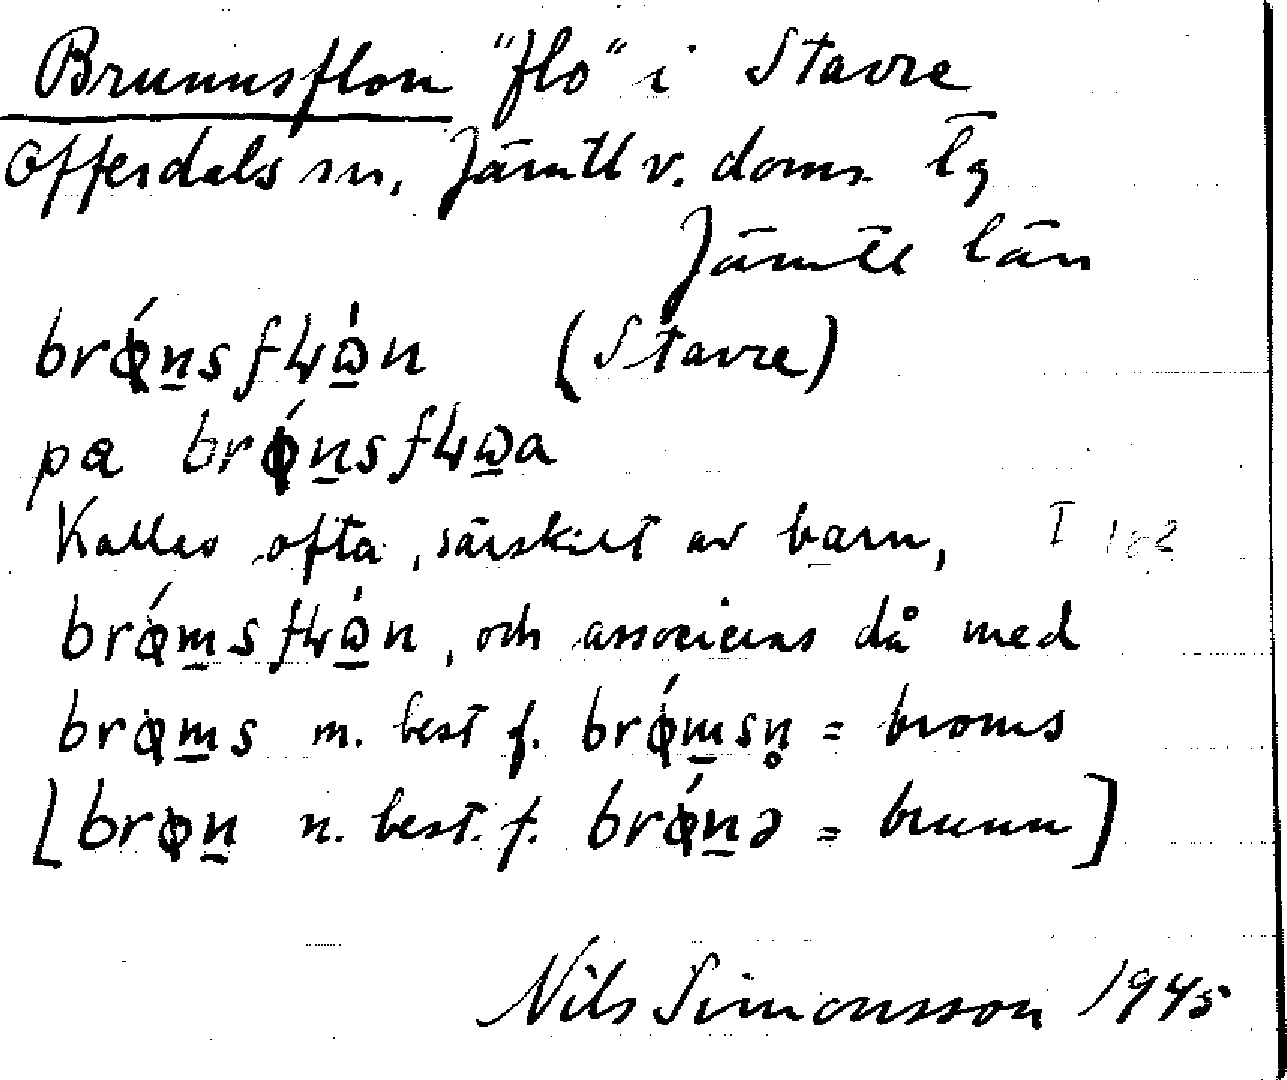 Brunnsflon "flo" i Stavre
Offerdals sn, Jämtl v. doms lg
Jämtl län
brǿn̲sfɬώ̲n (Stavre)
pa brǿn̲sfɬω̲a
Kallas ofta, särskilt av barn, I 182
brǿm̲sfɬώ̲n, och associeras då med
brøm̲s m. best f. brǿm̲sn̥ = broms
[brøn̲ n. best. f. brǿn̲ə = brunn]
Nils Simonsson 1945